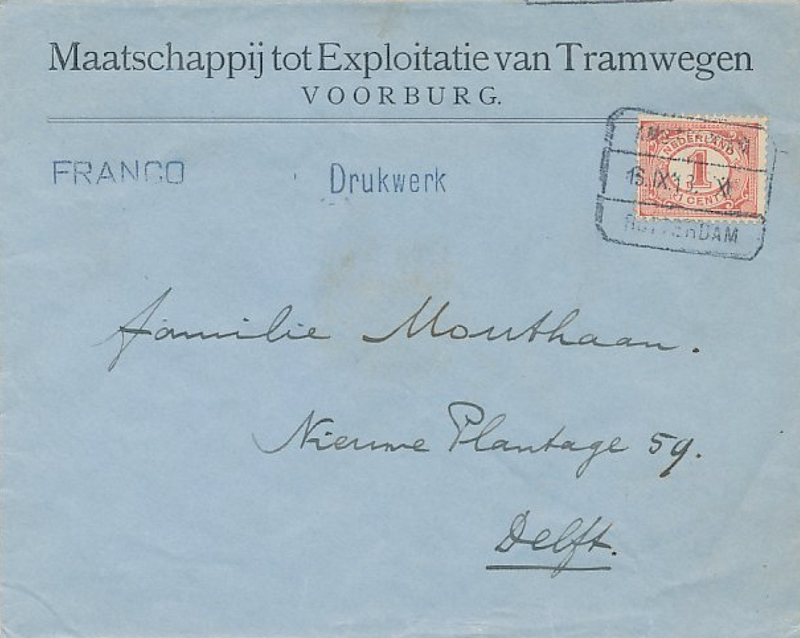 Maatschappij tot Exploitatie van Tramwegen
VOORBURG.
FRANCO
Drukwerk
NEDERLAND
1
1 CENT
ROTTERDAM
familie Mouthaan.
Nieuwe Plantage 59.
Delft.